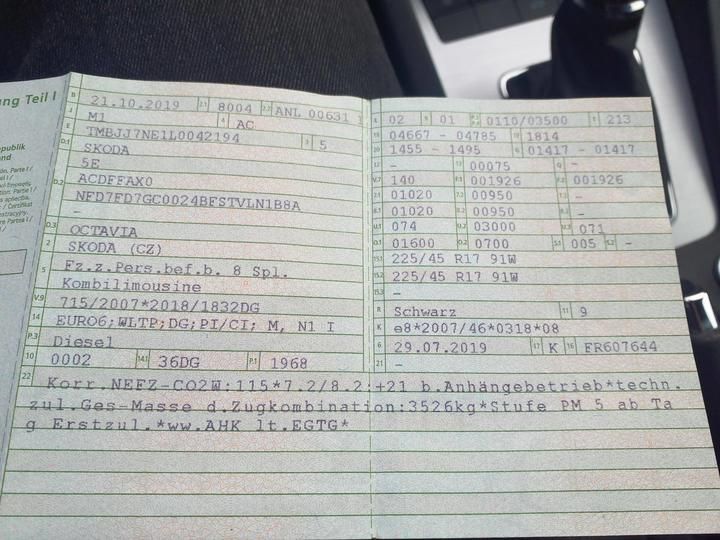 ung Teil I
B 21.10.2019 2.1 8004 2.2 ANL 00631
J M1 4 AC
E TMBJJ7NE1L0042194 3 5
D.1 SKODA
5E
D.2 ACDFFAX0
NFD7FD7GC0024BFSTVLN1B8A
-
D.3 OCTAVIA
2 SKODA (CZ)
5 Fz.z.Pers.bef.b. 8 Spl.
Kombilimousine
V.9 715/2007*2018/1832DG
14 EURO6;WLTP;DG;PI/CI; M, N1 I
P.3 Diesel
10 0002 14.1 36DG P.1 1968
22 Korr.NEFZ-CO2W:115*7.2/8.2:+21 b.Anhängebetrieb*techn.
zul.Ges-Masse d.Zugkombination:3526kg*Stufe PM 5 ab Ta
g Erstzul.*ww.AHK lt.EGTG*
L 02 9 01 0110/03500 T 213
18 04667 - 04785 19 1814
20 1455 - 1495 G 01417 - 01417
12 - 13 00075 Q -
V.7 140 F.1 001926 F.2 001926
7.1 01020 7.2 00950 7.3 -
8.1 01020 8.2 00950 8.3 -
U.1 074 U.2 03000 U.3 071
O.1 01600 O.2 0700 S.1 005 S.2 -
15.1 225/45 R17 91W
15.2 225/45 R17 91W
15.3 -
R Schwarz 11 9
K e8*2007/46*0318*08
6 29.07.2019 17 K 16 FR607644
21 -